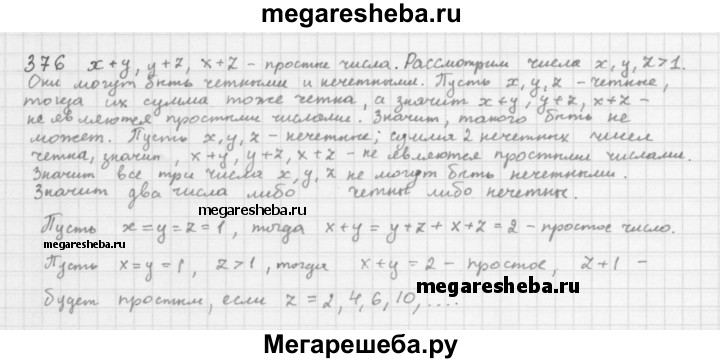 megaresheba.ru
376 x+y, y+z, x+z – простые числа. Рассмотрим числа x, y, z>1.
Они могут быть четными и нечетными. Пусть x, y, z – четные,
тогда их сумма тоже четна, а значит x+y, y+z, x+z –
не являются простыми числами. Значит, такого быть не
может. Пусть x, y, z – нечетные; сумма 2 нечетных чисел
четна, значит, x+y, y+z, x+z – не являются простыми числами.
Значит все три числа x, y, z не могут быть нечетными.
Значит два числа либо четны либо нечетны.
megaresheba.ru
Пусть x=y=z=1, тогда x+y=y+z=x+z=2 – простое число.
megaresheba.ru
Пусть x=y=1, z>1, тогда x+y=2 – простое, z+1 –
megaresheba.ru
будет простым, если z=2,4,6,10,....
Мегарешеба.ру